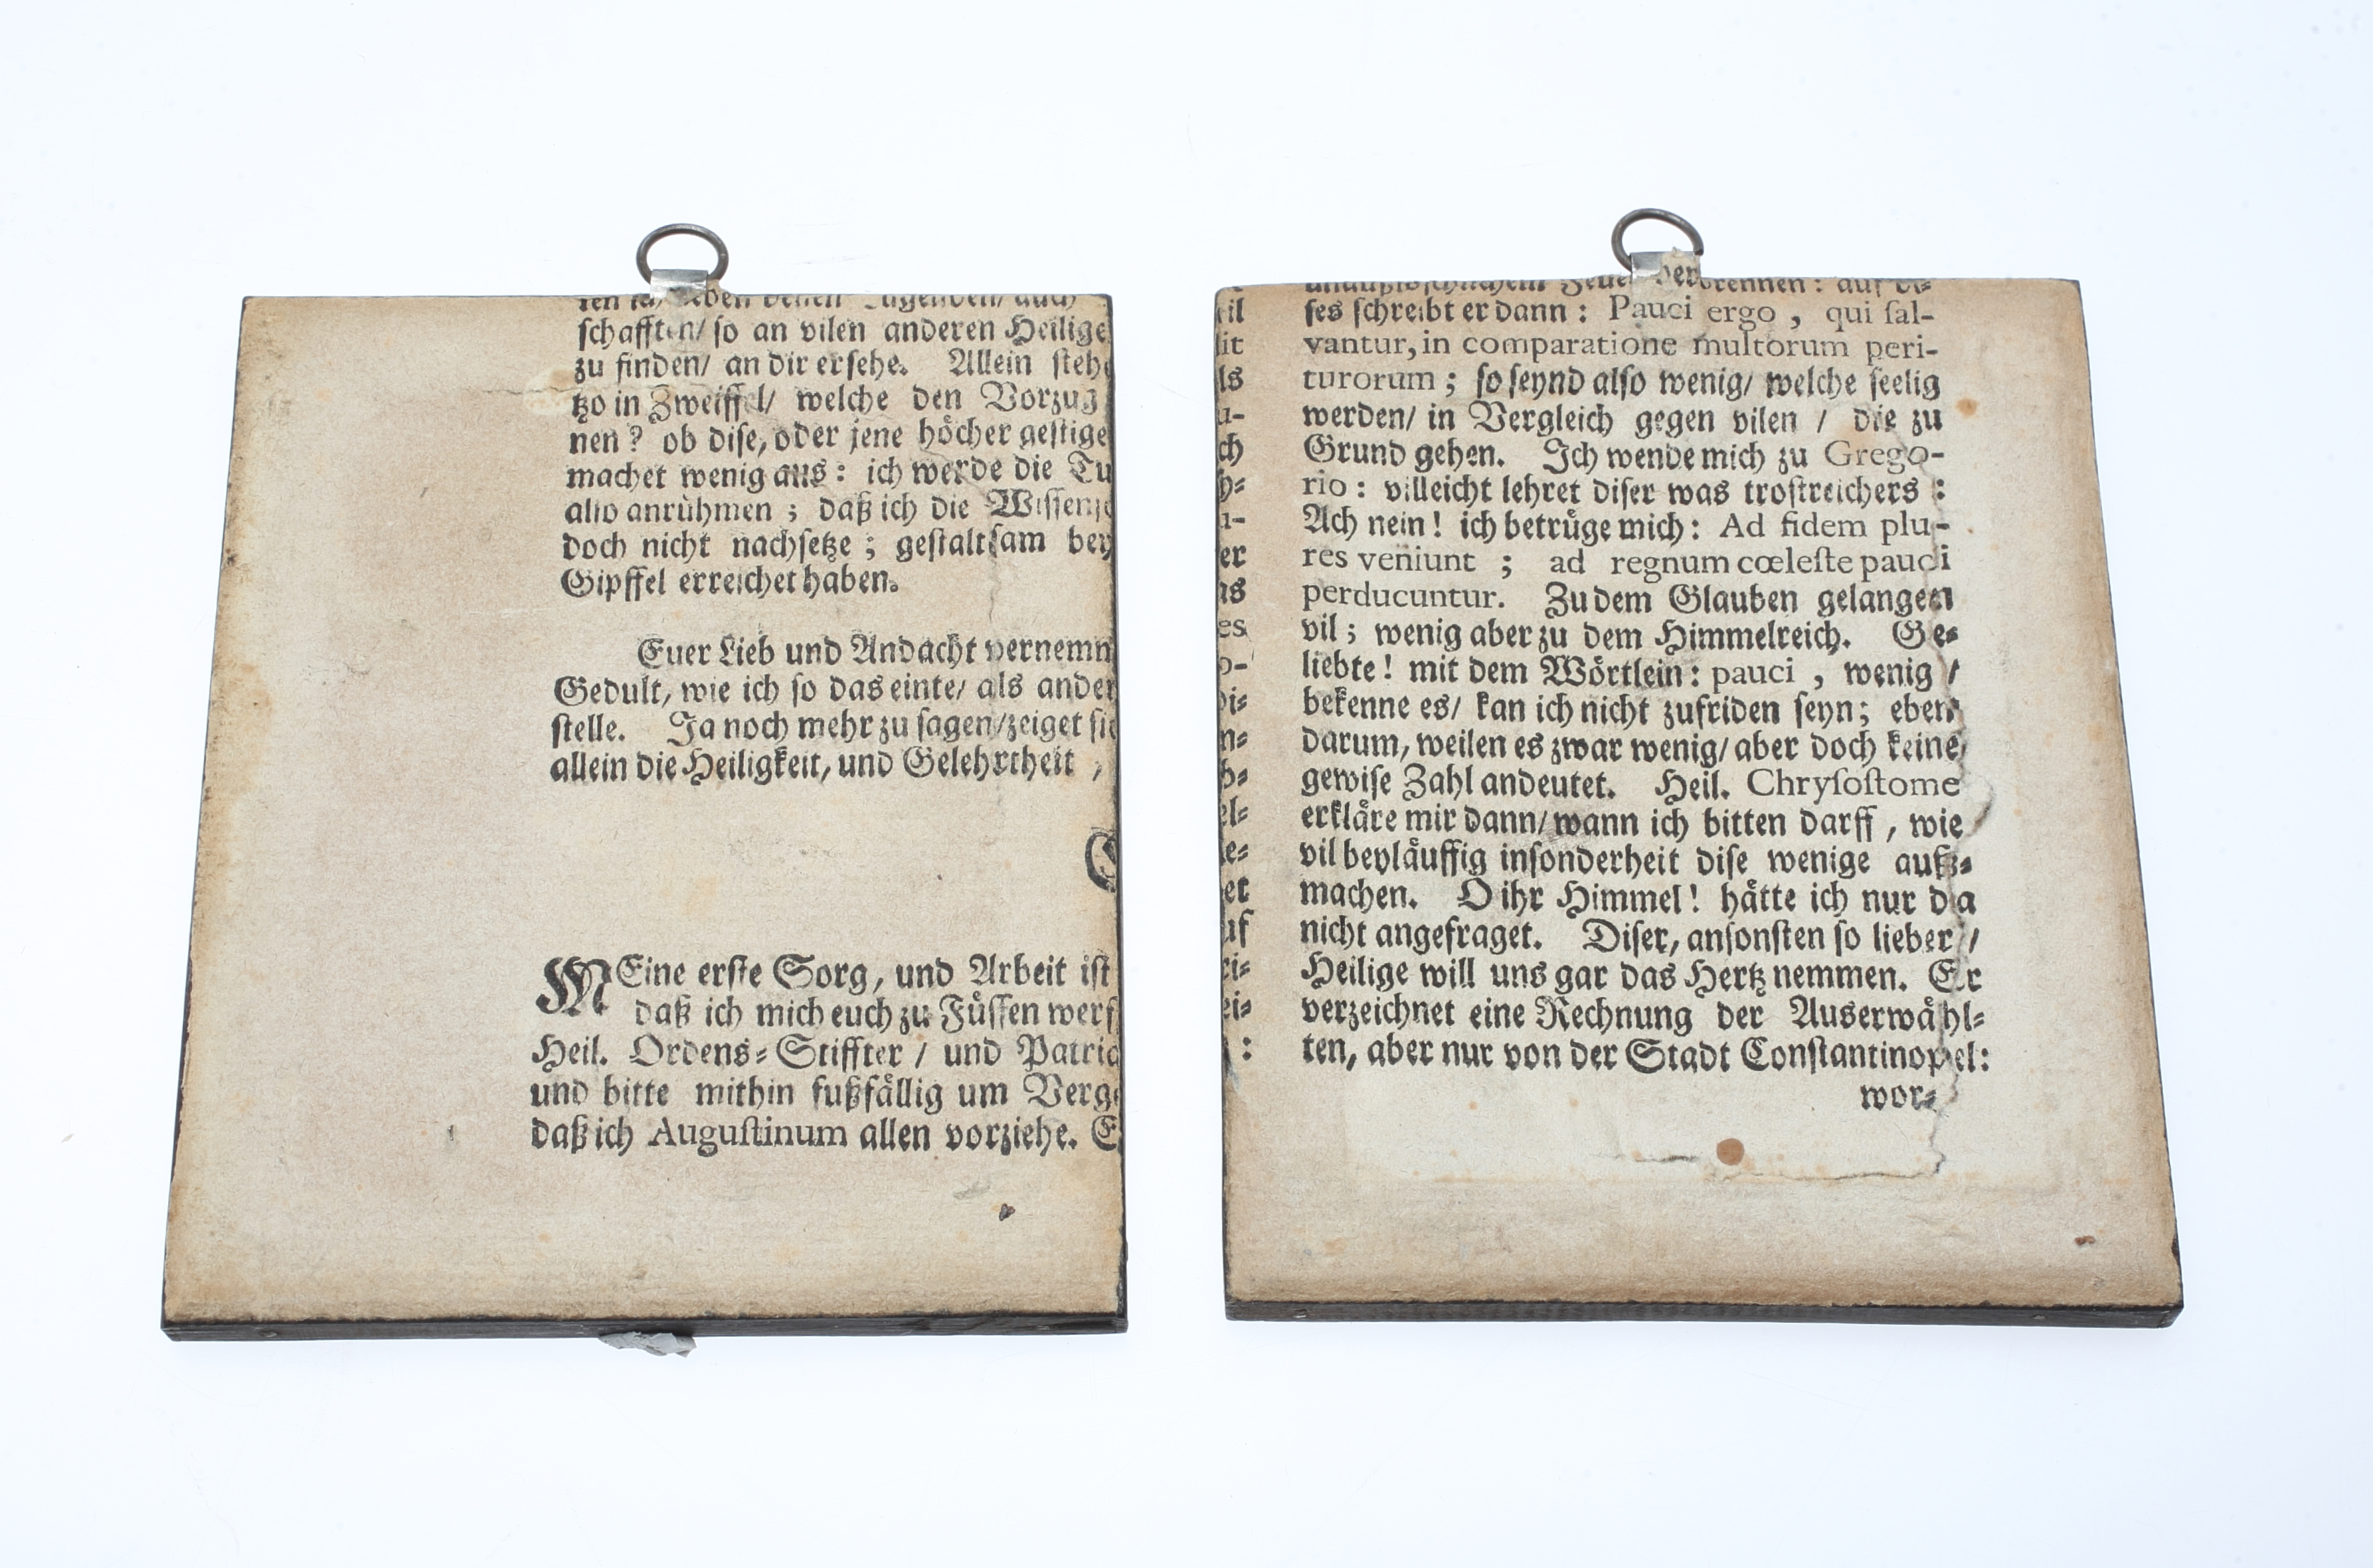 schafften/ so an vilen anderen Heilige
zu finden/ an dir ersehe. Allein stehe
tzo in Zweiffel/ welche den Vorzug
nen? ob dise, oder jene höcher gestige
machet wenig aus: ich werde die Tu
also anrühmen; daß ich die Wissensc
doch nicht nachsetze; gestaltsam bey
Gipffel erreichet haben.
Euer Lieb und Andacht vernemm
Gedult, wie ich so das einte/ als ander
stelle. Ja noch mehr zu sagen/zeiget sic
allein die Heiligkeit, und Gelehrtheit,
MEine erste Sorg, und Arbeit ist
daß ich mich euch zu Füssen werf
Heil. Ordens-Stiffter / und Patria
und bitte mithin fußfällig um Verge
daß ich Augustinum allen vorziehe. E
unaußlöschlichem Feuer verbrennen: auf di-
ses schreibt er dann: Pauci ergo, qui sal-
vantur, in comparatione multorum peri-
turorum; so seynd also wenig/ welche seelig
werden/ in Vergleich gegen vilen / die zu
Grund gehen. Ich wende mich zu Grego-
rio: villeicht lehret diser was trostreichers:
Ach nein! ich betrüge mich: Ad fidem plu-
res veniunt; ad regnum cœleste pauci
perducuntur. Zu dem Glauben gelangen
vil; wenig aber zu dem Himmelreich. Ge-
liebte! mit dem Wörtlein: pauci, wenig /
bekenne es/ kan ich nicht zufriden seyn; eben
darum, weilen es zwar wenig/ aber doch keine
gewise Zahl andeutet. Heil. Chrysostome
erkläre mir dann/ wann ich bitten darff, wie
vil beyläuffig insonderheit dise wenige auß-
machen. O ihr Himmel! hätte ich nur da
nicht angefraget. Diser, ansonsten so lieber /
Heilige will uns gar das Hertz nemmen. Er
verzeichnet eine Rechnung der Auserwähl-
ten, aber nur von der Stadt Constantinopel:
wor-